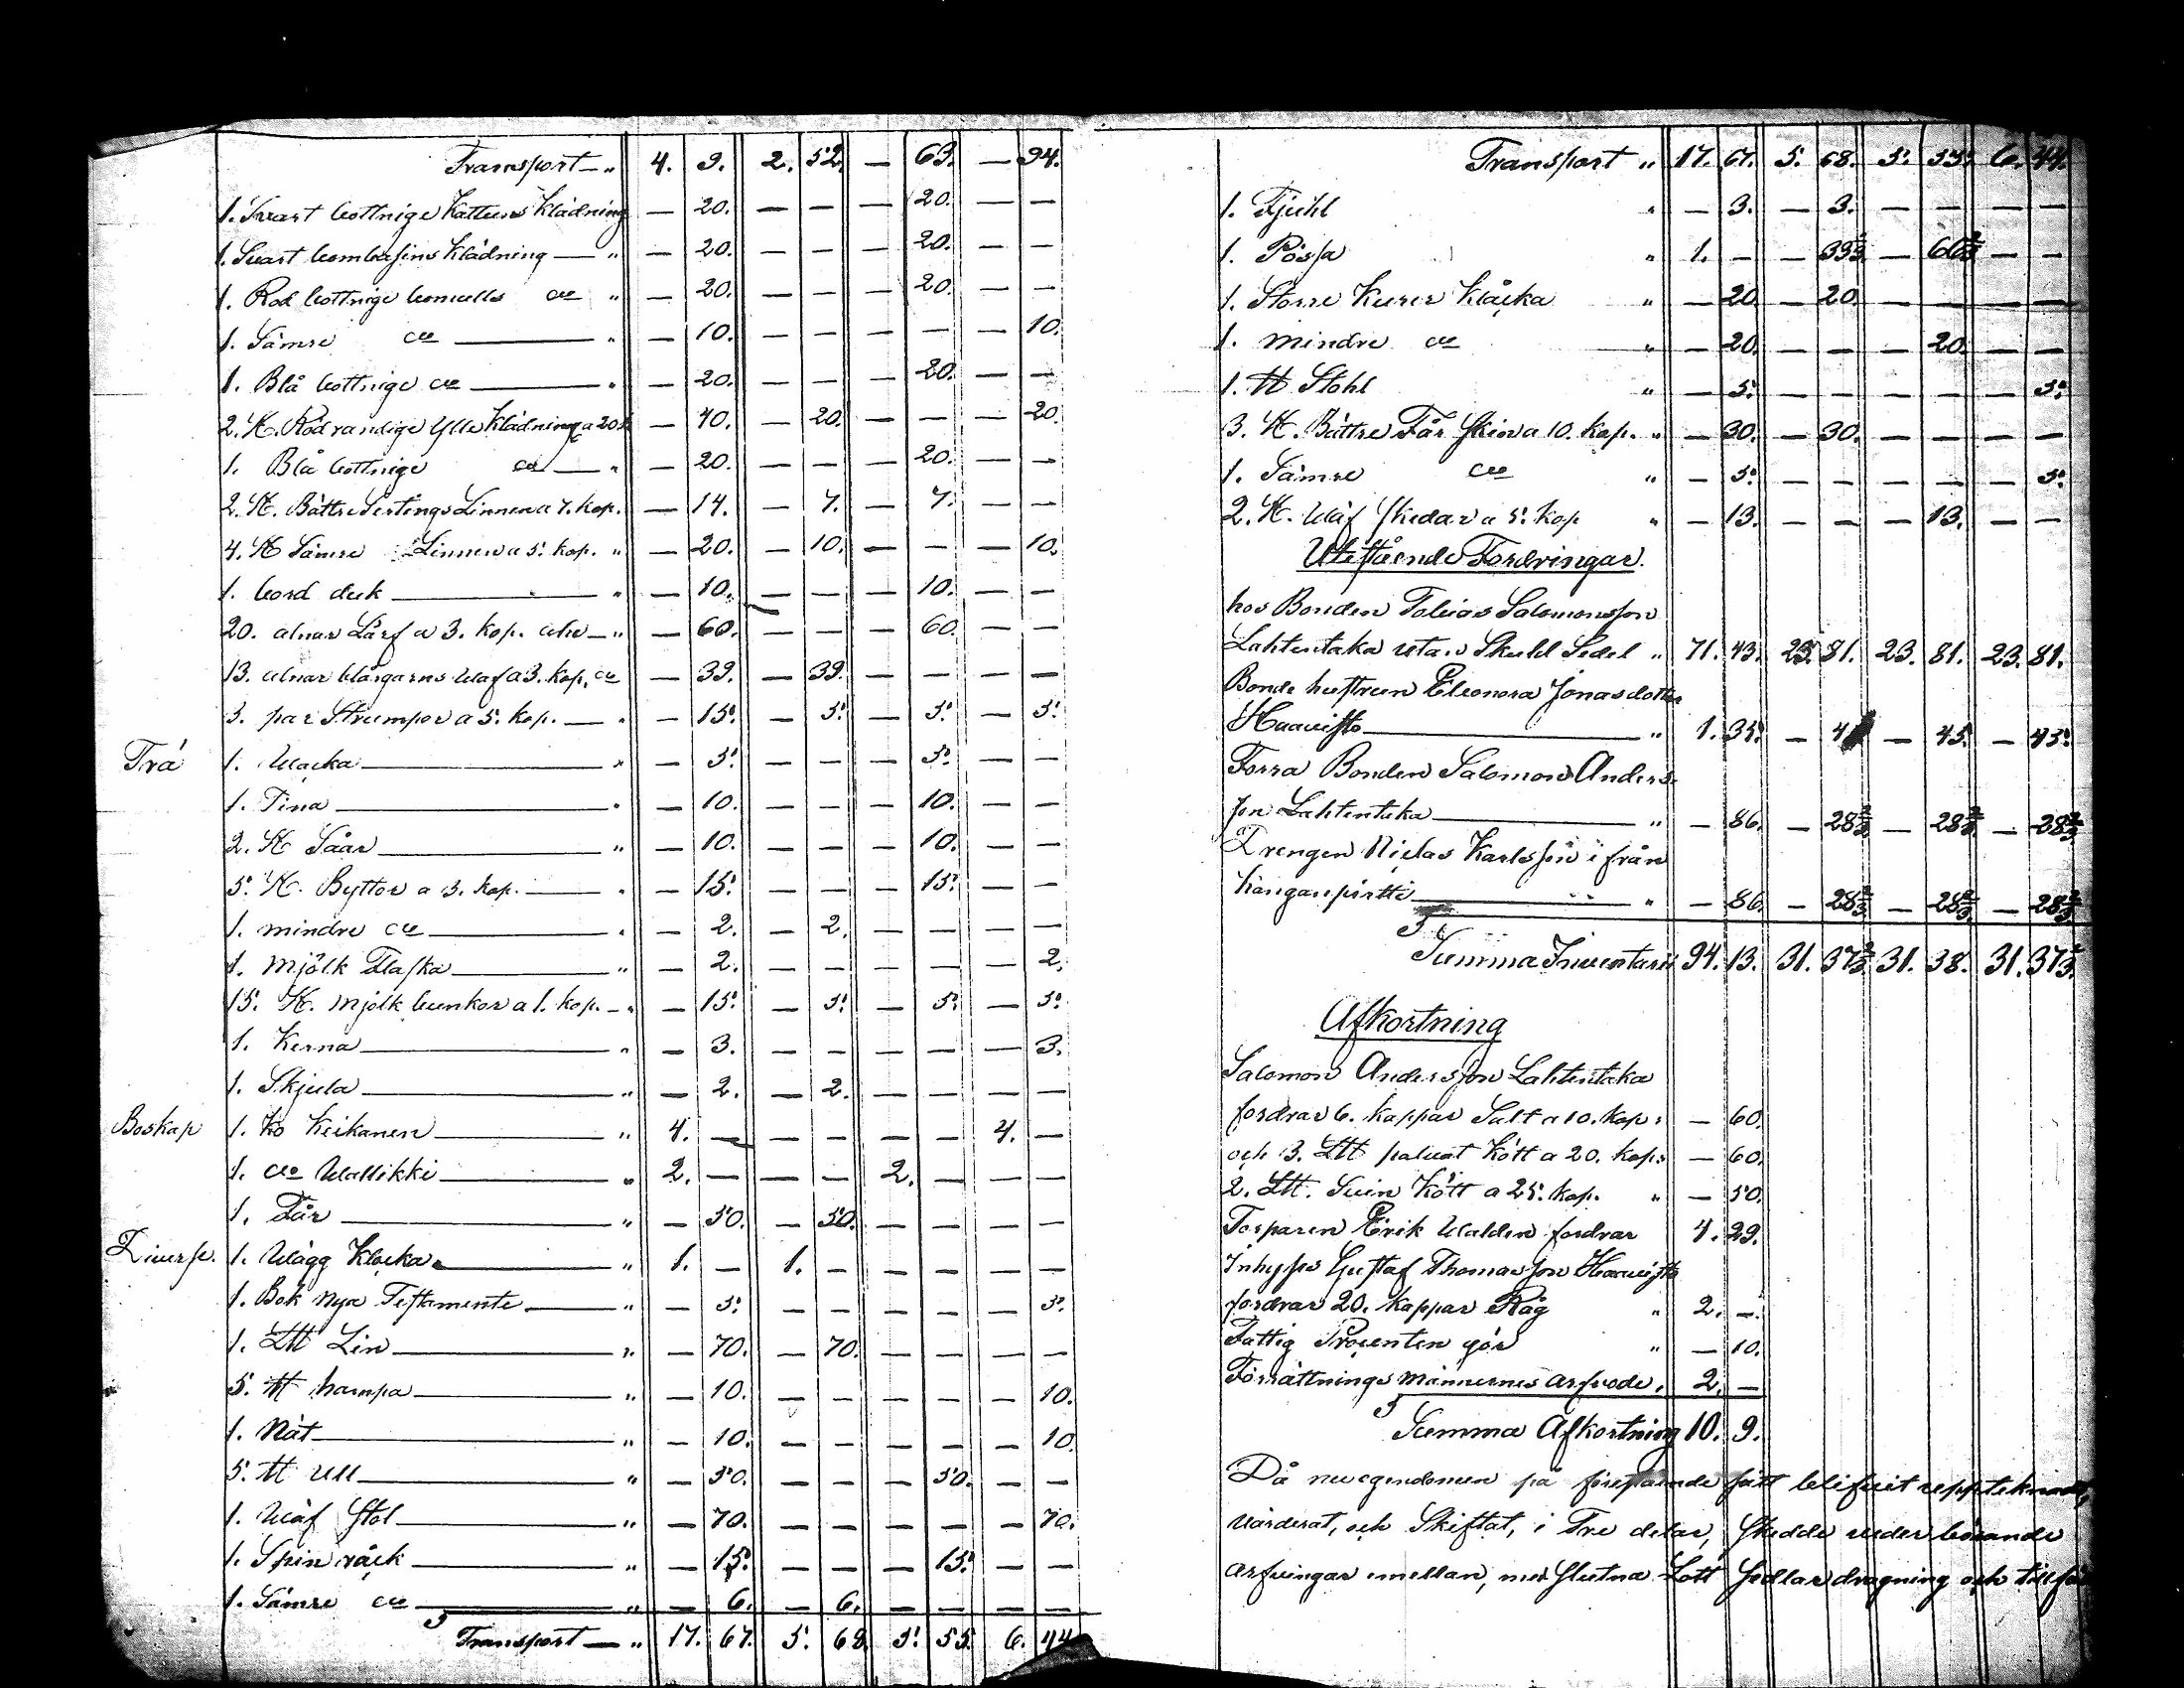 Transport — " 4. 9. 2. 52. — 63. — 94.
1. Svart bottnige Kattuns Klädning — 20. — — — 20. — —
1. Svart bombasins Klädning — " — 20. — — — 20. — —
1. Röd bottnige bomulls do " — 20. — — — 20. — —
1. Sämre do — " — 10. — — — — — 10.
1. Blå bottnige do — " — 20. — — — 20. — —
2. St. Rödrandige Ylle Klädning a 20 k — 40. — 20. — — — 20.
1. Blå bottnige do — " — 20. — — — 20. — —
2. St. Bättre Sertings Linnen a 7. kop. — 14. — 7. — 7. — —
4. St Sämre Linnen a 5. kop. " — 20. — 10. — — — 10.
1. bord duk — " — 10. — — — 10. — —
20. alnar Lärf a 3. kop. aln — " — 60. — — — 60. — —
13. alnar blårgarns Väf a 3. kop. do — 39. — 39. — — — —
3. par Strumpor a 5. kop. — " — 15. — 5. — 5. — 5.
Trä 1. Vacka — " — 5. — — — 5. — —
1. Tina — " — 10. — — — 10. — —
2. St Såar — " — 10. — — — 10. — —
5. St. Byttor a 3. kop. — " — 15. — — — 15. — —
1. mindre do — " — 2. — 2. — — — —
1. Mjölk Flaska — " — 2. — — — — — 2.
15. St. Mjölk bunkor a 1. kop. — " — 15. — 5. — 5. — 5.
1. Kerna — " — 3. — — — — — 3.
1. Skjula — " — 2. — 2. — — — —
Boskap 1. Ko Keikanen — " 4. — — — — — 4. —
1. do Wallikki — " 2. — — — 2. — — —
1. Får — " — 50. — 50. — — — —
Diverse. 1. Vägg Klocka — " 1. — 1. — — — — —
1. Bok Nya Testamente — " — 5. — — — — — 5.
1. L℔ Lin — " — 70. — 70. — — — —
5. ℔ hampa — " — 10. — — — — — 10.
1. Nät — " — 10. — — — — — 10
5. ℔ Ull — " — 50. — — — 50. — —
1. Väf Stol — " — 70. — — — — — 70.
1. Spin råck — " — 15. — — — 15. — —
1. Sämre do — " — 6. — 6. — — — —
Transport — " 17. 67. 5. 68. 5. 55. 6. 44
Transport " 17. 67. 5. 68. 5. 55. 6. 44.
1. Fjuhl " — 3. — 3. — — — —
1. Pössa " 1. — — 33⅓. — 66⅔ — —
1. Större Kurer Klåcka " — 20. — 20. — — — —
1. mindre do " — 20. — — — 20. — —
1. ℔ Stohl " — 5. — — — — — 5.
3. St. Bättre Får Skin a 10. kop. " — 30. — 30. — — — —
1. Sämre do " — 5. — — — — — 5.
2. St. Väf Skedar a 5. kop " — 13. — — — 13. — —
Utestående Fordringar.
hos Bonden Tobias Salomonsson
Lahtentaka utan Skuld Sedel " 71. 43. 23. 81. 23. 81. 23. 81.
Bonde hustrun Eleonora Jonasdotter
Haavisto — " 1. 35. — 4 — 45. — 45.
Forra Bonden Salomon Anders
son Lahtentaka — " — 86. — 28⅔ — 28⅔ — 28⅔
Drengen Niclas Karlsson ifrån
Kanganpirtti — " — 86. — 28⅔. — 28⅔. — 28⅔
Summa Inventarii 94. 13. 31. 37⅔ 31. 38. 31. 37⅔.
Afkortning
Salomon Andersson Lahtentaka
fordrar 6. kappar Salt a 10. kop: — 60.
och 3. L℔ palvat Kött a 20. kop: — 60.
2. L℔. Svin Kött a 25. kop. " — 50.
Torparen Erik Walden fordrar 4. 29.
Inhyses Gustaf Thomasson Haavisto
fordrar 20. kappar Råg " 2. —
Fattig Procenten gör " — 10.
Förrättnings männernes Arfvode. 2. —
Summa Afkortning 10. 9.
Då nu egendomen på förestående sätt blifvit upptecknad,
värderat, och Skiftat, i Tre delar, skedde vederbörande
arfvingar emellan, med slutna Lott Sedlar dragning och tillföl